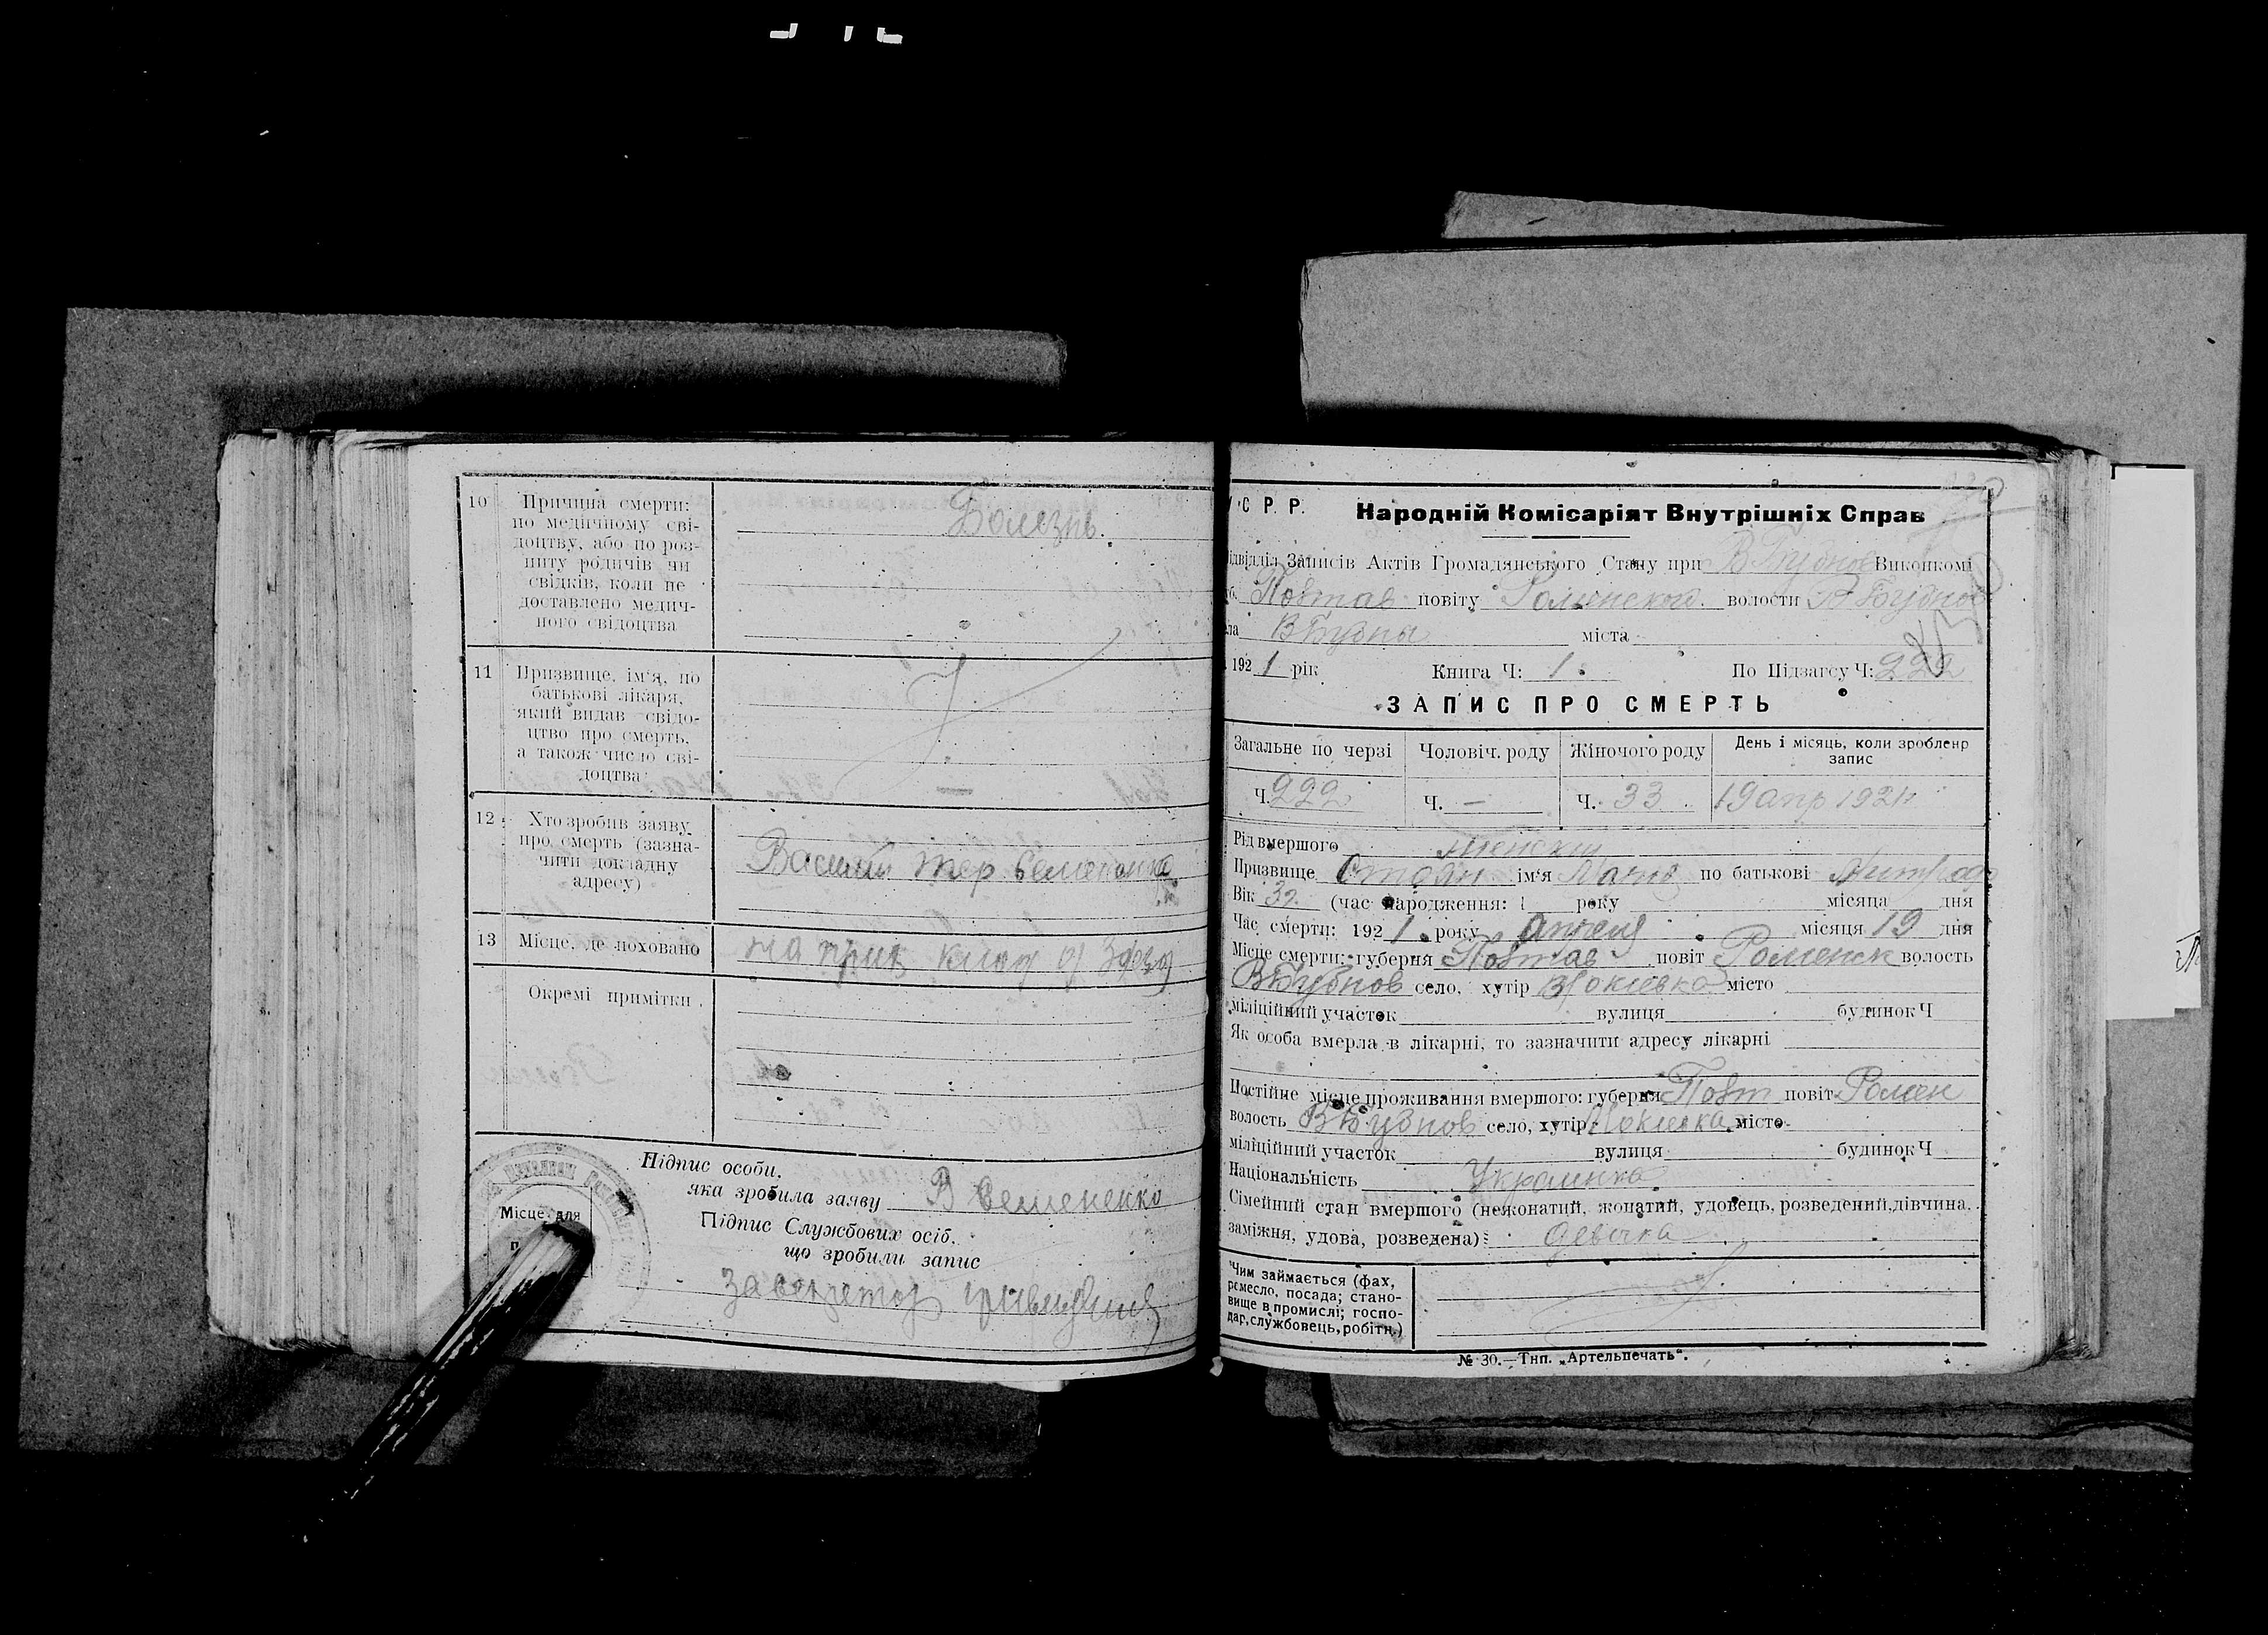 10 Причина смерти:
по медичному сві-
доцтву, або по роз-
питу родичів чи
свідків, коли не
доставлено медич-
ного свідоцтва
Болезнь.
11 Призвище, ім'я, по
батькові лікаря,
який видав свідо-
цтво про смерть,
а також число сві-
доцтва
—
12 Хто зробив заяву
про смерть (зазна-
чити докладну
адресу)
Василий
13 Місце, де поховано
на
Окремі примітки.
Підпис особи,
яка зробила заяву В Семененко
Підпис Службових осіб,
що зробили запис
Місце для
У С Р. Р. Народній Комісаріят Внутрішніх Справ
ідвідділ Записів Актів Громадянського Стану при В Бубнов Виконкомі
Полтав повіту Роменской волости В Бубнов
ла В Бубны міста
192 1 рік Книга Ч: 1. По Підзагсу Ч: 222
ЗАПИС ПРО СМЕРТЬ
Загальне по черзі Чоловіч. роду Жіночого роду День і місяць, коли зроблено
запис
Ч. 222 Ч. — Ч. 33 19 апр 1921
Рід вмершого женский
Призвище ім'я по батькові
Вік 32 (час народження: 1 року місяца дня
Час смерти: 192 1. року апреля місяця 19 дня
Місце смерти: губерня Полтав повіт Роменск волость
В Бубнов село, хутір місто
міліційний участок вулиця будинок Ч
Як особа вмерла в лікарні, то зазначити адресу лікарні
Постійне місце проживання вмершого: губерня Полт повіт Ромен
волость В Бубнов село, хутір місто
міліційний участок вулиця будинок Ч
Національність Украинка.
Сімейний стан вмершого (нежонатий, жонатий, удовець, розведений, дівчина,
заміжня, удова, розведена) девочка
Чим займається (фах,
ремесло, посада; стано-
вище в промислі; госпо-
дар, службовець, робітн.)
№ 30.—Тип. „Артельпечать“.